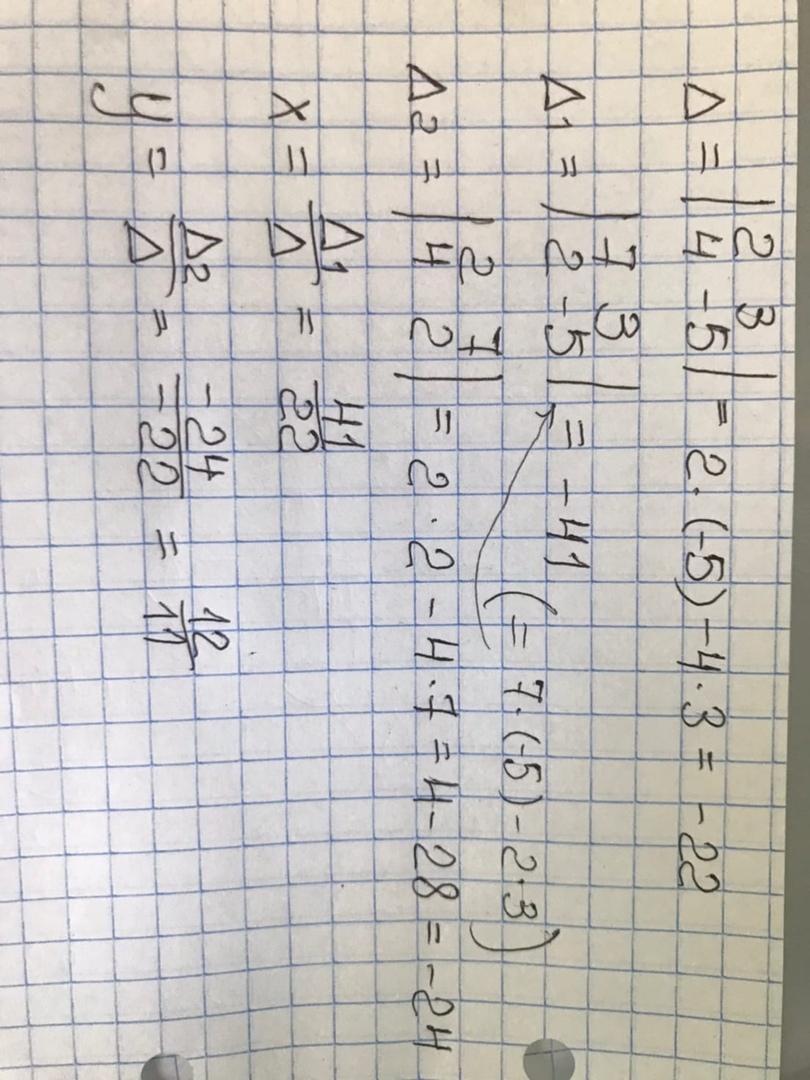 Δ = | 2 3 |
| 4 -5 | = 2·(-5)-4·3 = -22
Δ1 = | 7 3 |
| 2 -5 | = -41 (= 7·(-5)-2·3)
Δ2 = | 2 7 |
| 4 2 | = 2·2-4·7=4-28=-24
x = Δ1/Δ = 41/22
y = Δ2/Δ = -24/-22 = 12/11